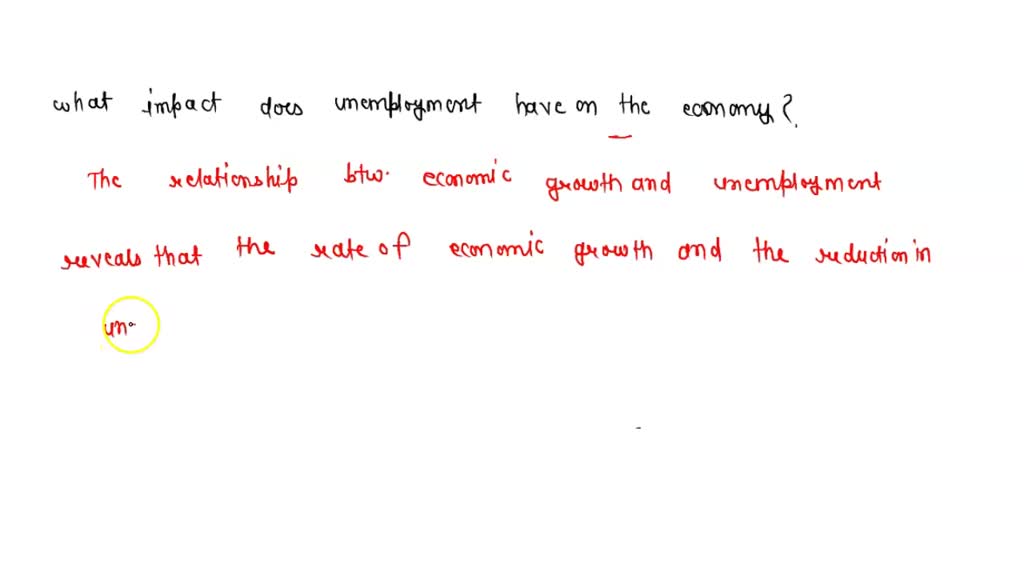 what impact does unemployment have on the economy?
The relationship btw. economic growth and unemployment
reveals that the rate of economic growth and the reduction in
un